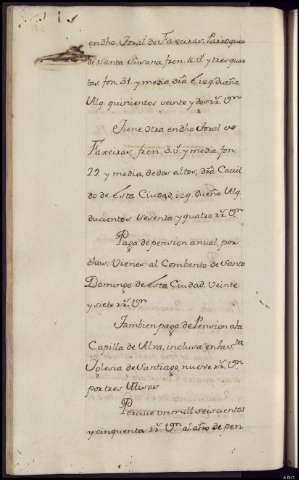 en dho Arral de Faxeiras, Parroquia
de Santa Susana, fron. 4. vs. y tres quar
tas, fon. 31. y media, dra.
Alq. quinientos veinte y dos rs. vn.
Tiene otra en dho Arral de
Faxeiras, fron. 3. vs. y media fon.
22. y media, de dos altos, dra. Cavil
do de esta Ciudad, izq. dueño Alq.
ducientos sesenta y quatro rs. vn.
Paga de pension anual, por
dhos. Vienes al Combento de Santo
Domingo de esta Ciudad Veinte
y siete rs. vn.
Tambien paga de Pension a la
Capilla de Alva, inclusa en la sta.
Iglesia de Santiago, nueve rs. vn.
por tres Missas
Percive un mill seiscientos
y cinquenta rs. vn. al año de pen